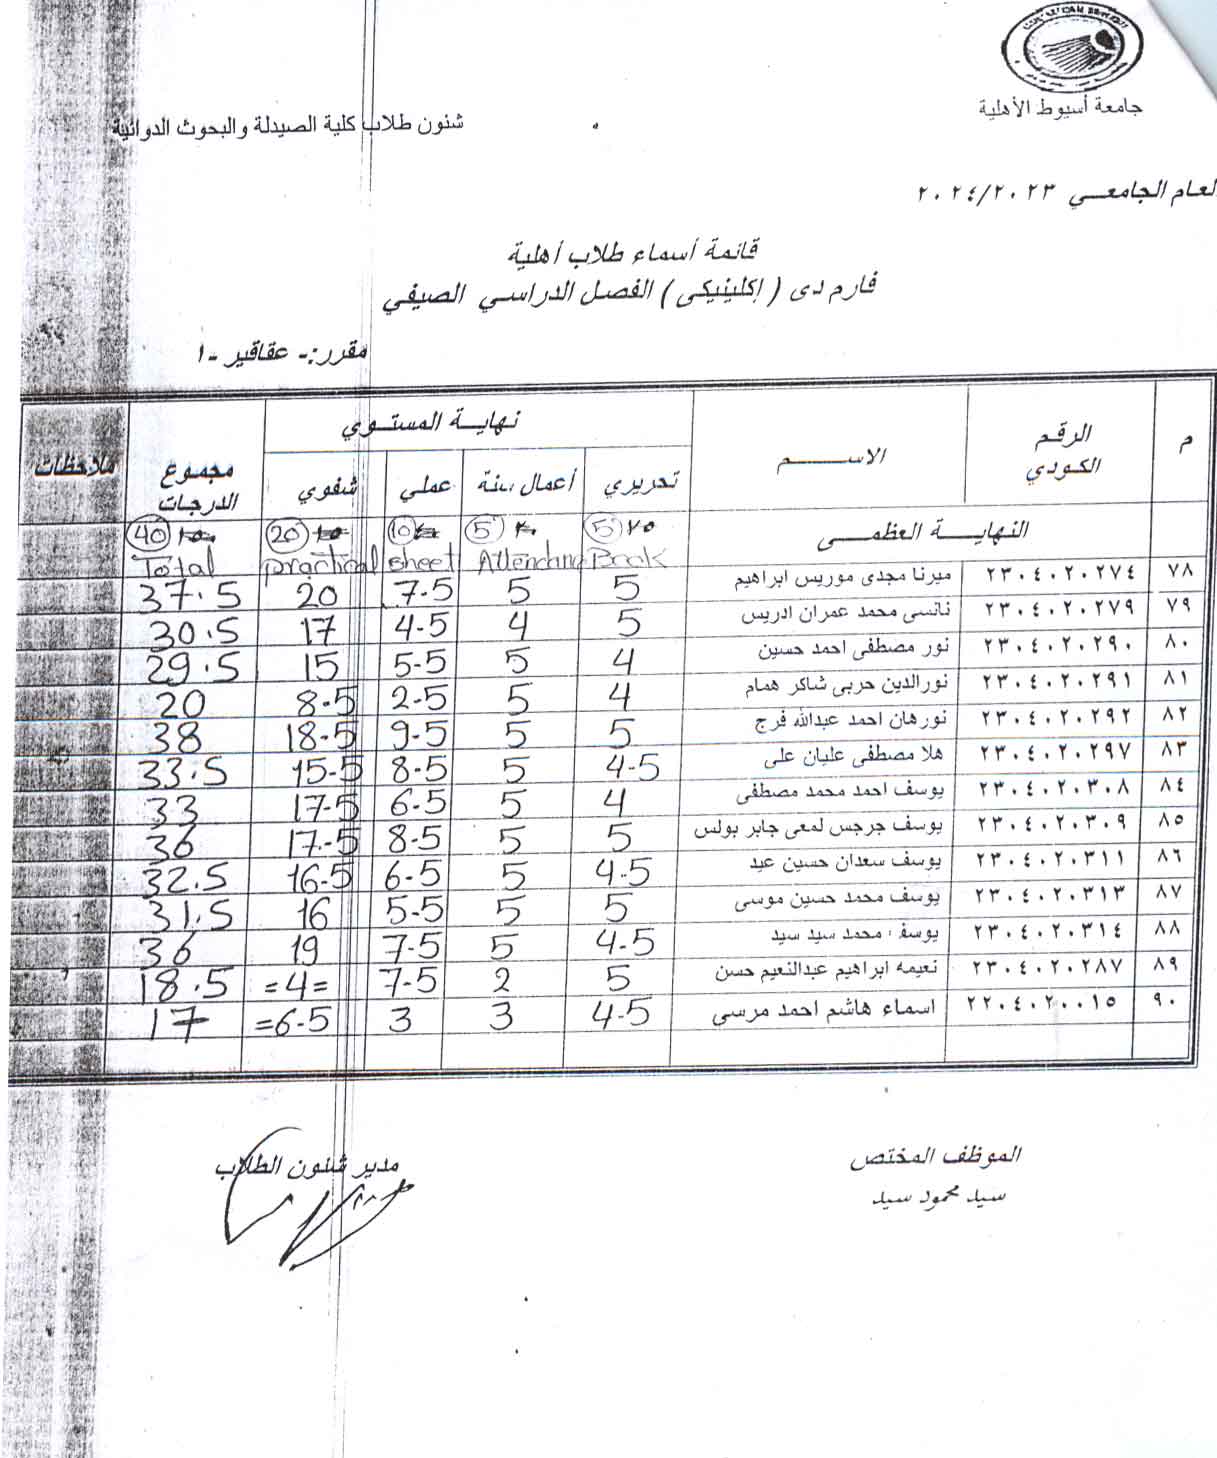 جامعة أسيوط الأهلية
شئون طلاب كلية الصيدلة والبحوث الدوائية
لعام الجامعـــي ٢٠٢٤/٢٠٢٣
قائمة أسماء طلاب أهلية
فارم دى ( إكلينيكى ) الفصل الدراسي الصيفي
مقرر:- عقاقير -١
م الرقم الكودي الاســـــم نهايـة المستـوي مجموع الدرجات ملاحظات
تحريري أعمال سنة عملي شفوي
النهايـة العظمـى 5 5 10 20 40
Book Attendance sheet practical Total
٧٨ ٢٣٠٤٠٢٠٢٧٤ ميرنا مجدى موريس ابراهيم 5 5 7.5 20 37.5
٧٩ ٢٣٠٤٠٢٠٢٧٩ نانسى محمد عمران ادريس 5 4 4.5 17 30.5
٨٠ ٢٣٠٤٠٢٠٢٩٠ نور مصطفى احمد حسين 4 5 5.5 15 29.5
٨١ ٢٣٠٤٠٢٠٢٩١ نورالدين حربى شاكر همام 4 5 2.5 8.5 20
٨٢ ٢٣٠٤٠٢٠٢٩٢ نورهان احمد عبدالله فرج 5 5 9.5 18.5 38
٨٣ ٢٣٠٤٠٢٠٢٩٧ هلا مصطفى عليان على 4.5 5 8.5 15.5 33.5
٨٤ ٢٣٠٤٠٢٠٣٠٨ يوسف احمد محمد مصطفى 4 5 6.5 17.5 33
٨٥ ٢٣٠٤٠٢٠٣٠٩ يوسف جرجس لمعى جابر بولس 5 5 8.5 17.5 36
٨٦ ٢٣٠٤٠٢٠٣١١ يوسف سعدان حسين عيد 4.5 5 6.5 16.5 32.5
٨٧ ٢٣٠٤٠٢٠٣١٣ يوسف محمد حسين موسى 5 5 5.5 16 31.5
٨٨ ٢٣٠٤٠٢٠٣١٤ يوسف محمد سيد سيد 4.5 5 7.5 19 36
٨٩ ٢٣٠٤٠٢٠٢٨٧ نعيمه ابراهيم عبدالنعيم حسن 5 2 7.5 =4= 18.5
٩٠ ٢٢٠٤٠٢٠٠١٥ اسماء هاشم احمد مرسى 4.5 3 3 =6.5 17
الموظف المختص
مدير شئون الطلاب
سيد محمود سيد